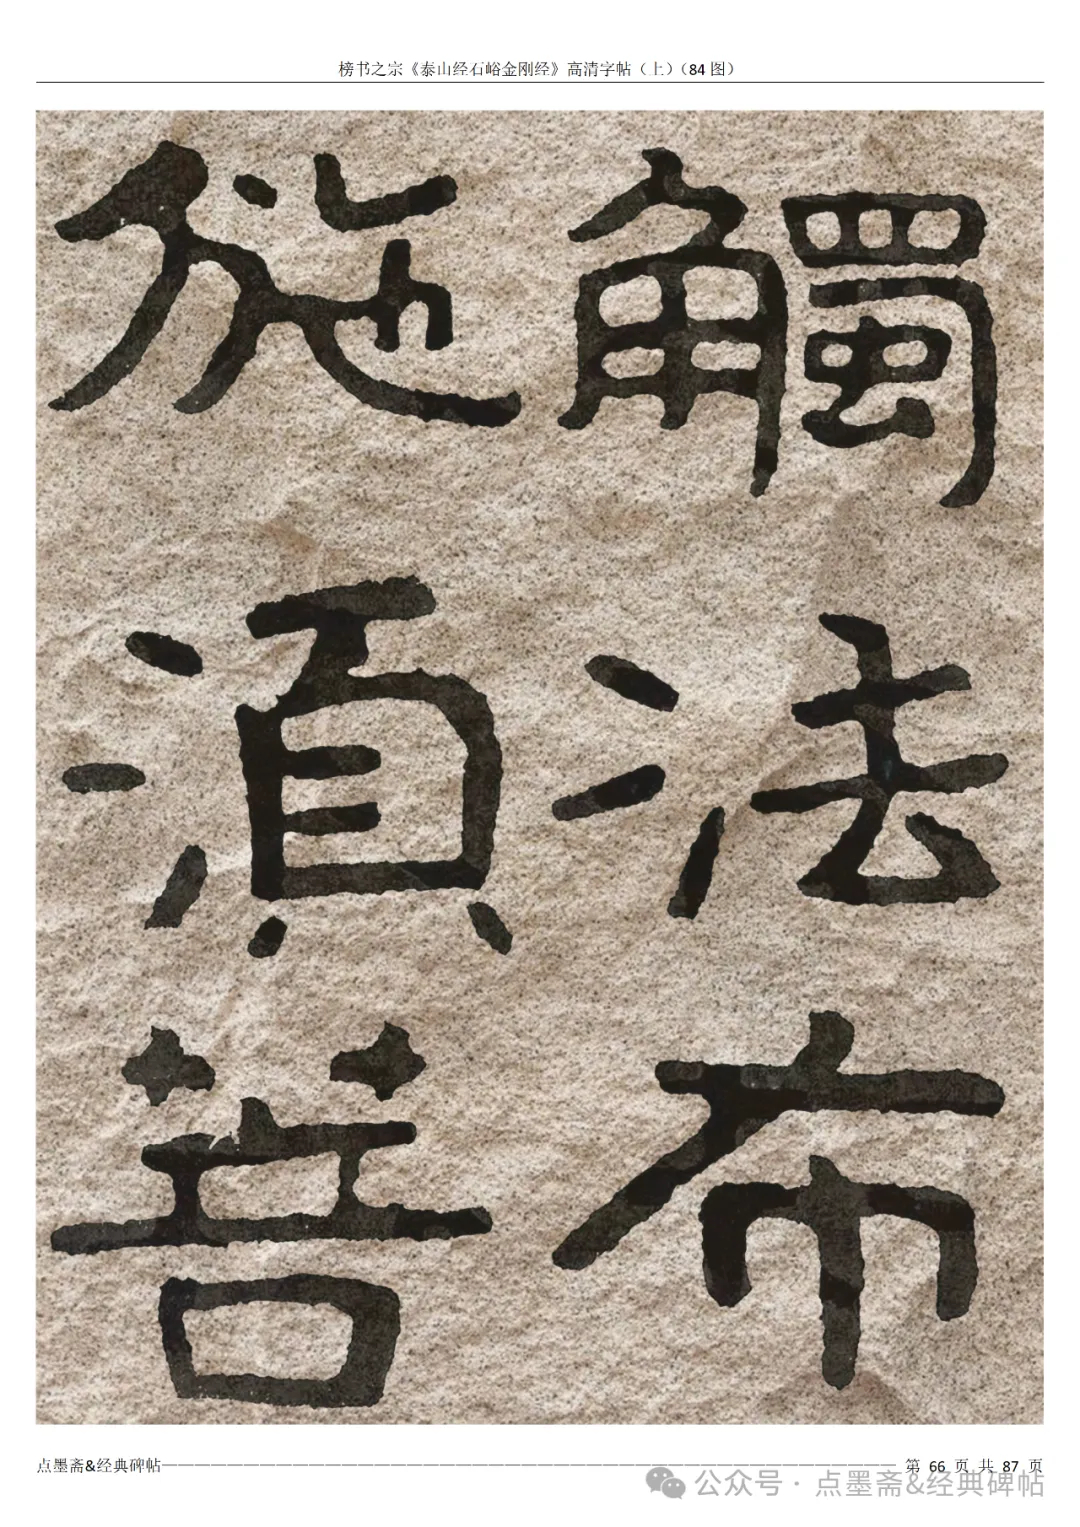 榜书之宗《泰山经石峪金刚经》高清字帖（上）（84 图）
觸法布
施湏菩
点墨斋&经典碑帖——————————————————第 66 页 共 87 页
公众号 · 点墨斋&经典碑帖